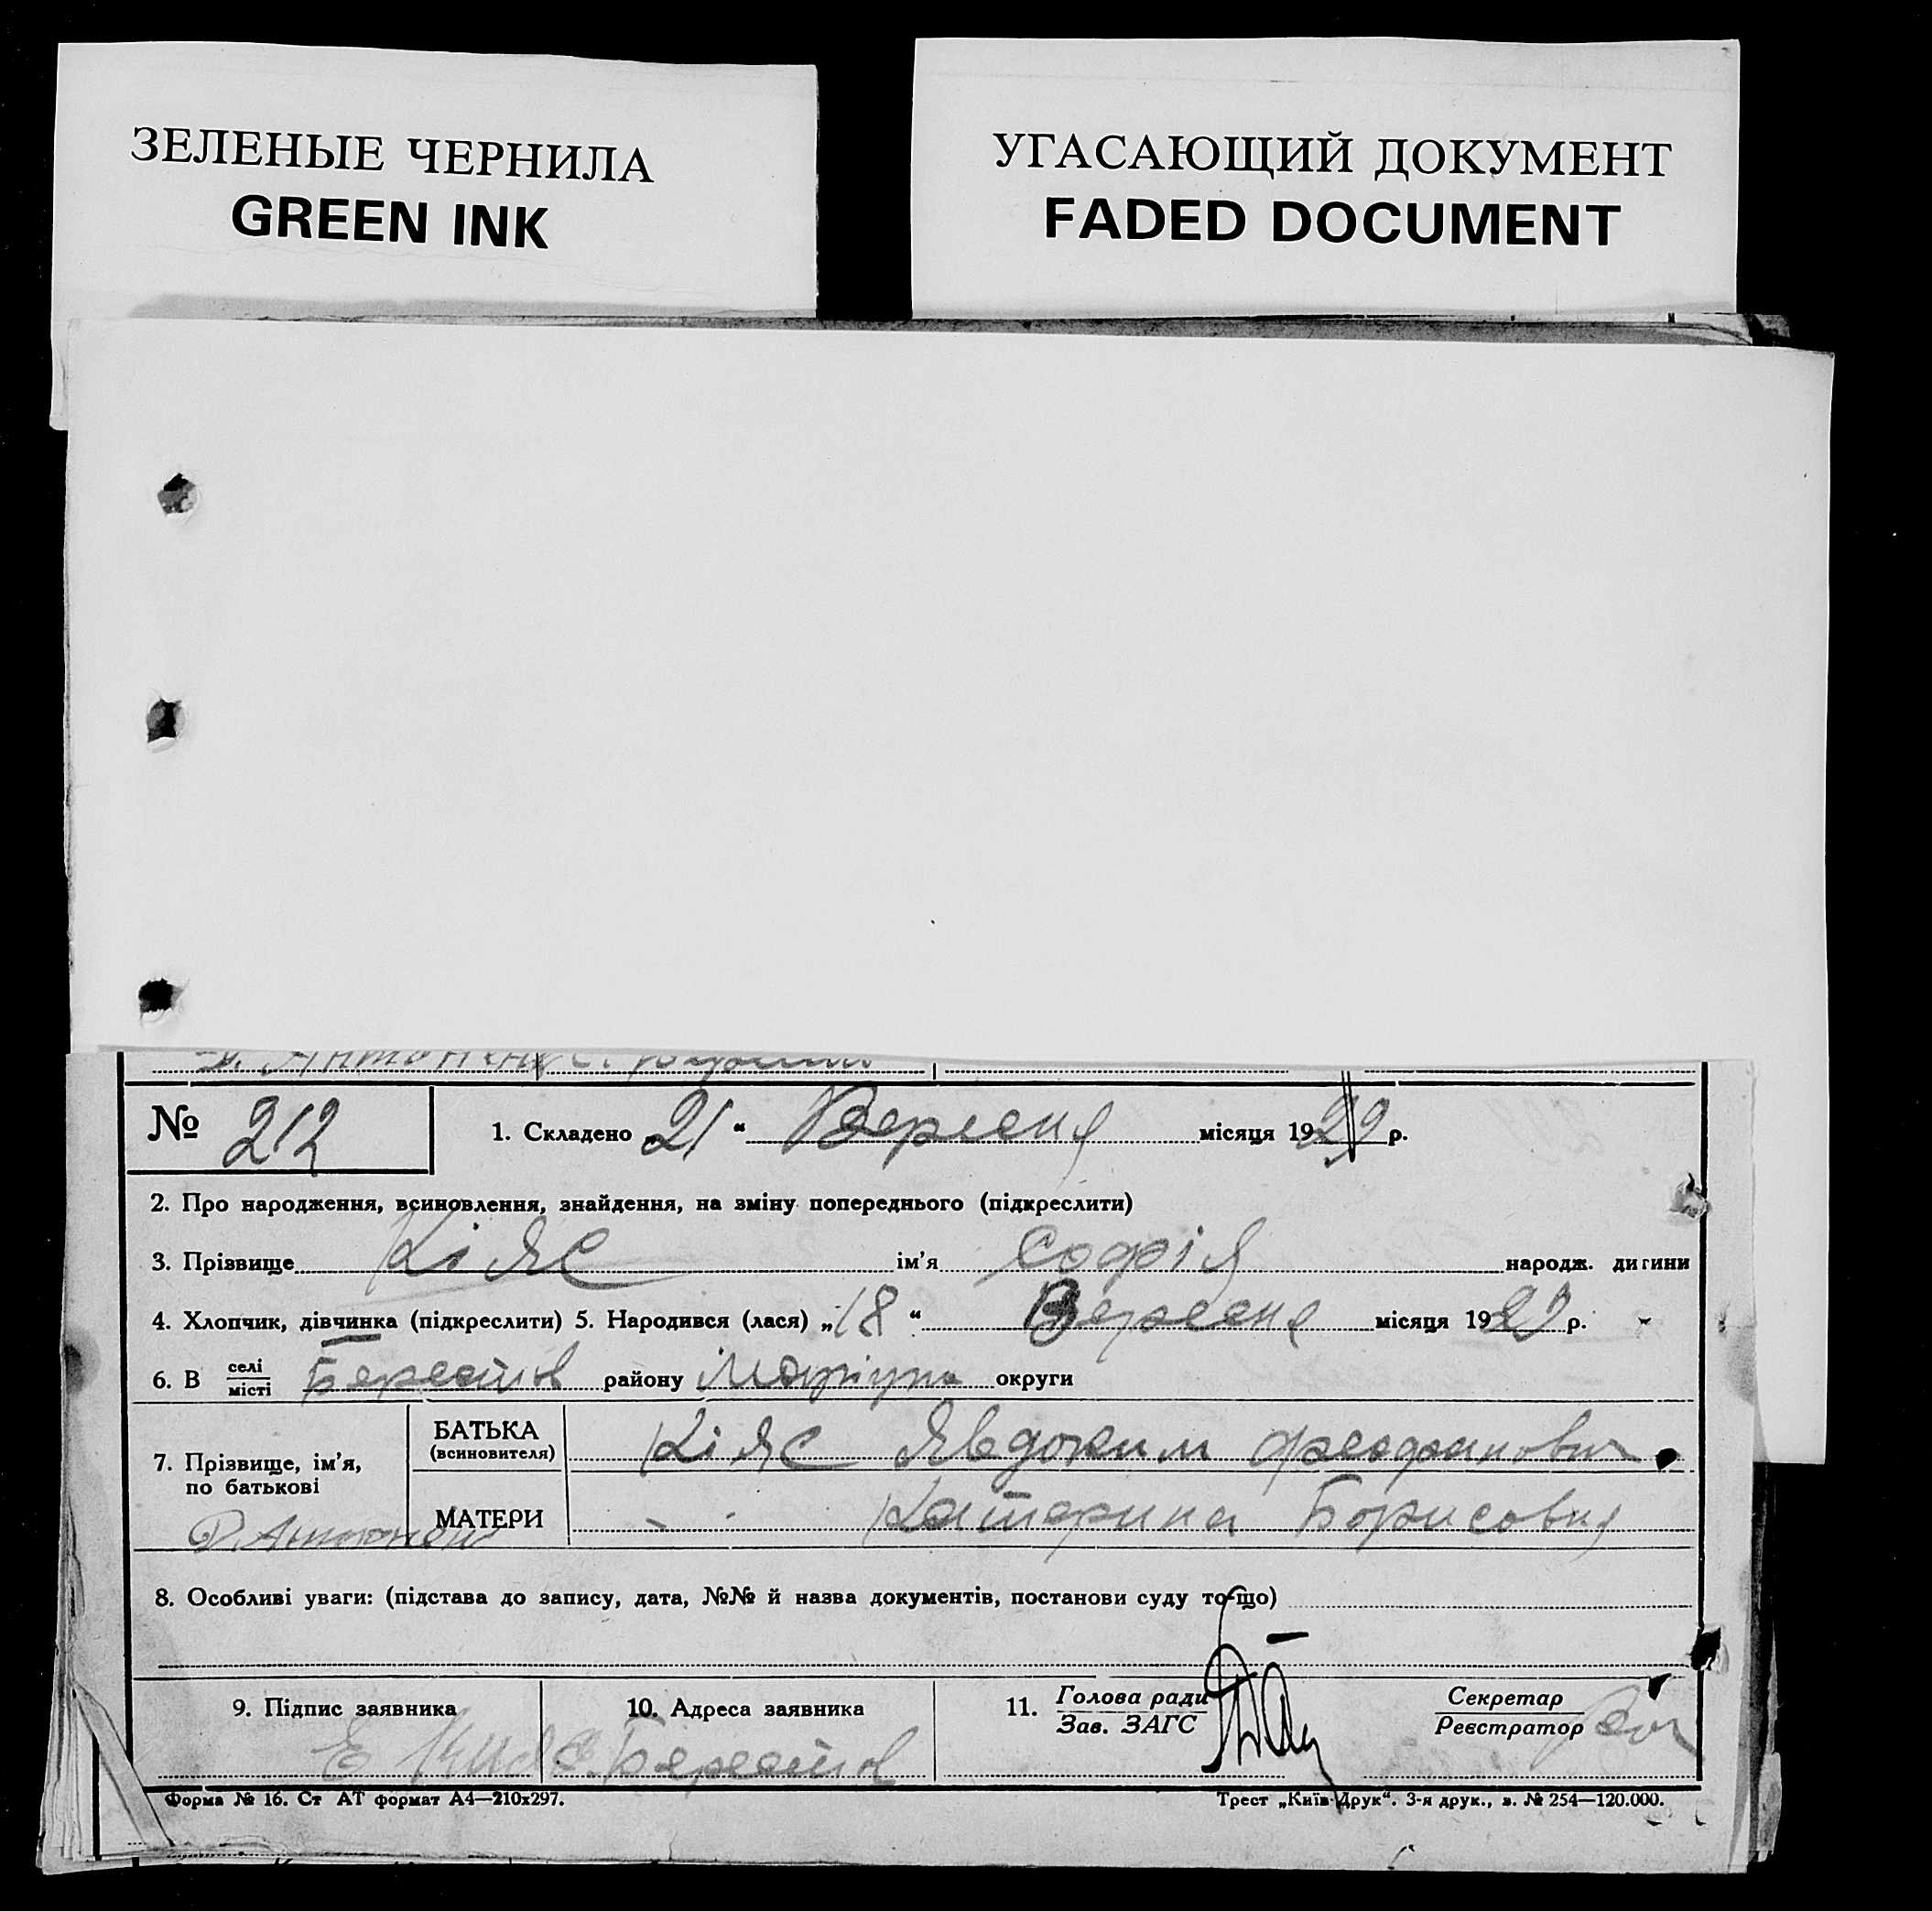 ЗЕЛЕНЫЕ ЧЕРНИЛА
GREEN INK
УГАСАЮЩИЙ ДОКУМЕНТ
FADED DOCUMENT
№ 212
1. Складено „21“ Вересня місяця 1929 р.
2. Про народження, всиновлення, знайдення, на зміну попереднього (підкреслити)
3. Прізвище Кіяс ім’я Софія народж. дитини
4. Хлопчик, дівчинка (підкреслити) 5. Народився (лася) „18“ Вересня місяця 1929 р.
6. В селі/місті Берестов району Маріупи округи
7. Прізвище, ім’я, по батькові
БАТЬКА (всиновителя) Кіяс Явдоким Феофанович
МАТЕРИ - - Катерина Борисовня
8. Особливі уваги: (підстава до запису, дата, №№ й назва документів, постанови суду то-що)
9. Підпис заявника
10. Адреса заявника
11. Голова ради / Зав. ЗАГС
Секретар / Реєстратор
Е Кияс с. Берестов
Форма № 16. Ст АТ формат А4—210х297.
Трест „Київ-Друк“. 3-я друк., з. № 254—120.000.